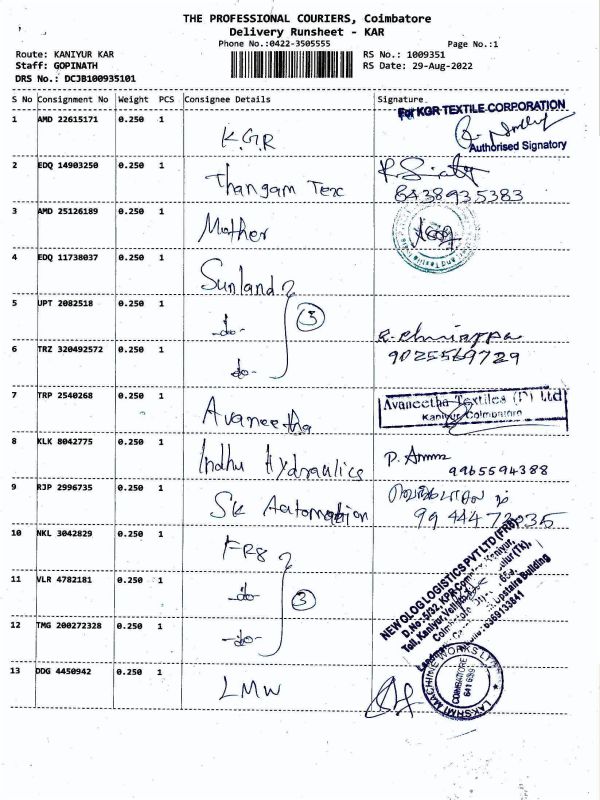 THE PROFESSIONAL COURIERS, Coimbatore
Delivery Runsheet - KAR
Phone No.:0422-3505555
Page No.:1
Route: KANIYUR KAR
RS No.: 1009351
Staff: GOPINATH
RS Date: 29-Aug-2022
DRS No.: DCJB100935101
S No Consignment No Weight PCS Consignee Details Signature
For KGR TEXTILE CORPORATION
1 AMD 22615171 0.250 1 K.G.R
Authorised Signatory
2 EDQ 14903250 0.250 1 Thangam Tex
8438935383
3 AMD 25126189 0.250 1 Mother
4 EDQ 11738037 0.250 1 Sunland
5 UPT 2082518 0.250 1 -do- 3
6 TRZ 320492572 0.250 1 -do-
9025569729
7 TRP 2540268 0.250 1 Avaneetha
Avaneetha Textiles (P) Ltd
Kaniyur, Coimbatore
8 KLK 8042775 0.250 1 Indhu Hydraulics
9965594388
9 RJP 2996735 0.250 1 SK Automation
10 NKL 3042829 0.250 1 FR8
11 VLR 4782181 0.250 1 -do- 3
12 TMG 200272328 0.250 1 -do-
NEWOLOG LOGISTICS PVT LTD (FR8)
D.No:5/32, KPR
Kaniyur,
Upstairs Building
13 DDG 4450942 0.250 1 LMW
LAKSHMI MACHINE WORKS
COIMBATORE